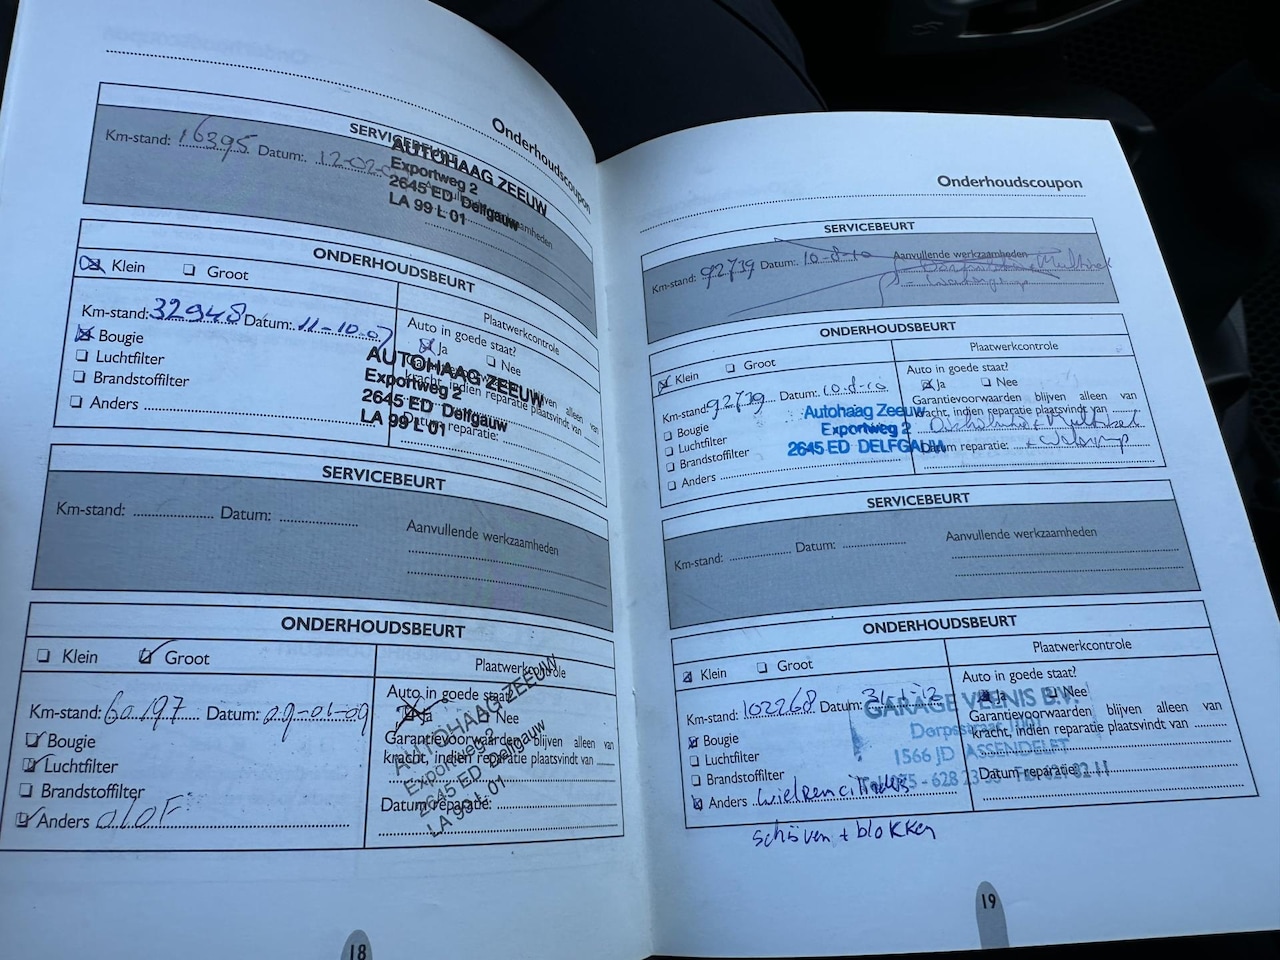 Onderhoudscoupon
SERVICEBEURT
Km-stand: 16395 Datum: 12-02-
AUTOHAAG ZEEUW
Exportweg 2
2645 ED Delfgauw
LA 99 L 01
ONDERHOUDSBEURT
Klein Groot
Plaatwerkcontrole
Km-stand: 32948 Datum: 11-10-07
Auto in goede staat?
Ja Nee
Bougie
Luchtfilter
Brandstoffilter
Anders
kracht, indien reparatie plaatsvindt van
Datum reparatie:
AUTOHAAG ZEEUW
Exportweg 2
2645 ED Delfgauw
LA 99 L 01
SERVICEBEURT
Km-stand: Datum:
Aanvullende werkzaamheden
ONDERHOUDSBEURT
Klein Groot
Plaatwerkcontrole
Km-stand: 60197 Datum: 09-01-09
Auto in goede staat?
Ja Nee
Garantievoorwaarden blijven alleen van
kracht, indien reparatie plaatsvindt van
Datum reparatie:
Bougie
Luchtfilter
Brandstoffilter
Anders
AUTOHAAG ZEEUW
Exportweg 2
2645 ED Delfgauw
LA 99 L 01
18
Onderhoudscoupon
SERVICEBEURT
Km-stand: 92739 Datum: 10-8-10
Aanvullende werkzaamheden
ONDERHOUDSBEURT
Klein Groot
Plaatwerkcontrole
Km-stand: 92739 Datum: 10-8-10
Auto in goede staat?
Ja Nee
Garantievoorwaarden blijven alleen van
kracht, indien reparatie plaatsvindt van
Datum reparatie:
Bougie
Luchtfilter
Brandstoffilter
Anders
Autohaag Zeeuw
Exportweg 2
2645 ED DELFGAUW
SERVICEBEURT
Km-stand: Datum:
Aanvullende werkzaamheden
ONDERHOUDSBEURT
Klein Groot
Plaatwerkcontrole
Km-stand: 102268 Datum: 31-1-12
Auto in goede staat?
Ja Nee
Garantievoorwaarden blijven alleen van
kracht, indien reparatie plaatsvindt van
Datum reparatie:
Bougie
Luchtfilter
Brandstoffilter
Anders wielremcilinders
schijven + blokken
GARAGE VEENIS B.V.
Dorpsstraat
1566 JD ASSENDELFT
19